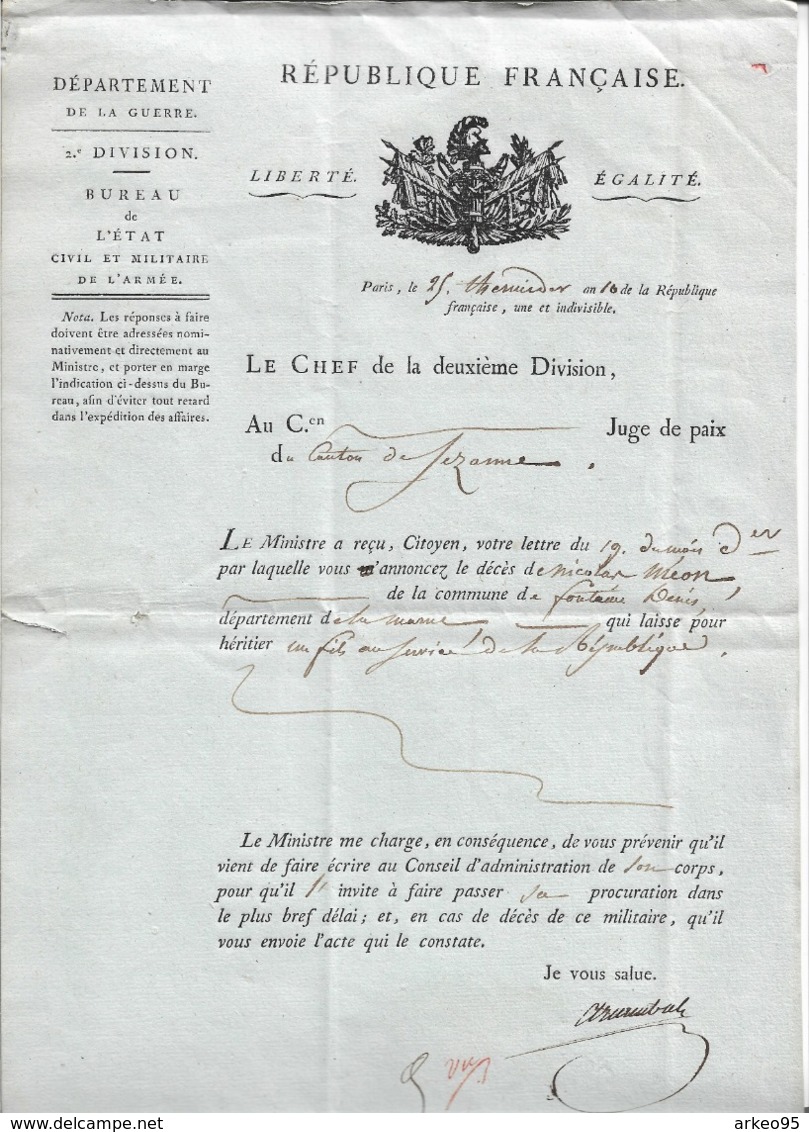 DÉPARTEMENT
DE LA GUERRE.
2.e DIVISION.
BUREAU
de
L'ÉTAT
CIVIL ET MILITAIRE
DE L'ARMÉE.
Nota. Les réponses à faire
doivent être adressées nomi-
nativement et directement au
Ministre, et porter en marge
l'indication ci-dessus du Bu-
reau, afin d'éviter tout retard
dans l'expédition des affaires.
RÉPUBLIQUE FRANÇAISE.
LIBERTÉ. ÉGALITÉ.
Paris, le 25. thermidor an 10 de la République
française, une et indivisible.
LE CHEF de la deuxième Division,
Au C.en Juge de paix
du Canton de Sezanne.
LE Ministre a reçu, Citoyen, votre lettre du 19. du mois der
par laquelle vous m'annoncez le décès de nicolas meon,
de la commune de fontaine Denis,
département de la marne, qui laisse pour
héritier un fils au service de la République.
Le Ministre me charge, en conséquence, de vous prévenir qu'il
vient de faire écrire au Conseil d'administration de son corps,
pour qu'il l' invite à faire passer sa procuration dans
le plus bref délai; et, en cas de décès de ce militaire, qu'il
vous envoie l'acte qui le constate.
Je vous salue.
delcampe.net
arkeo95